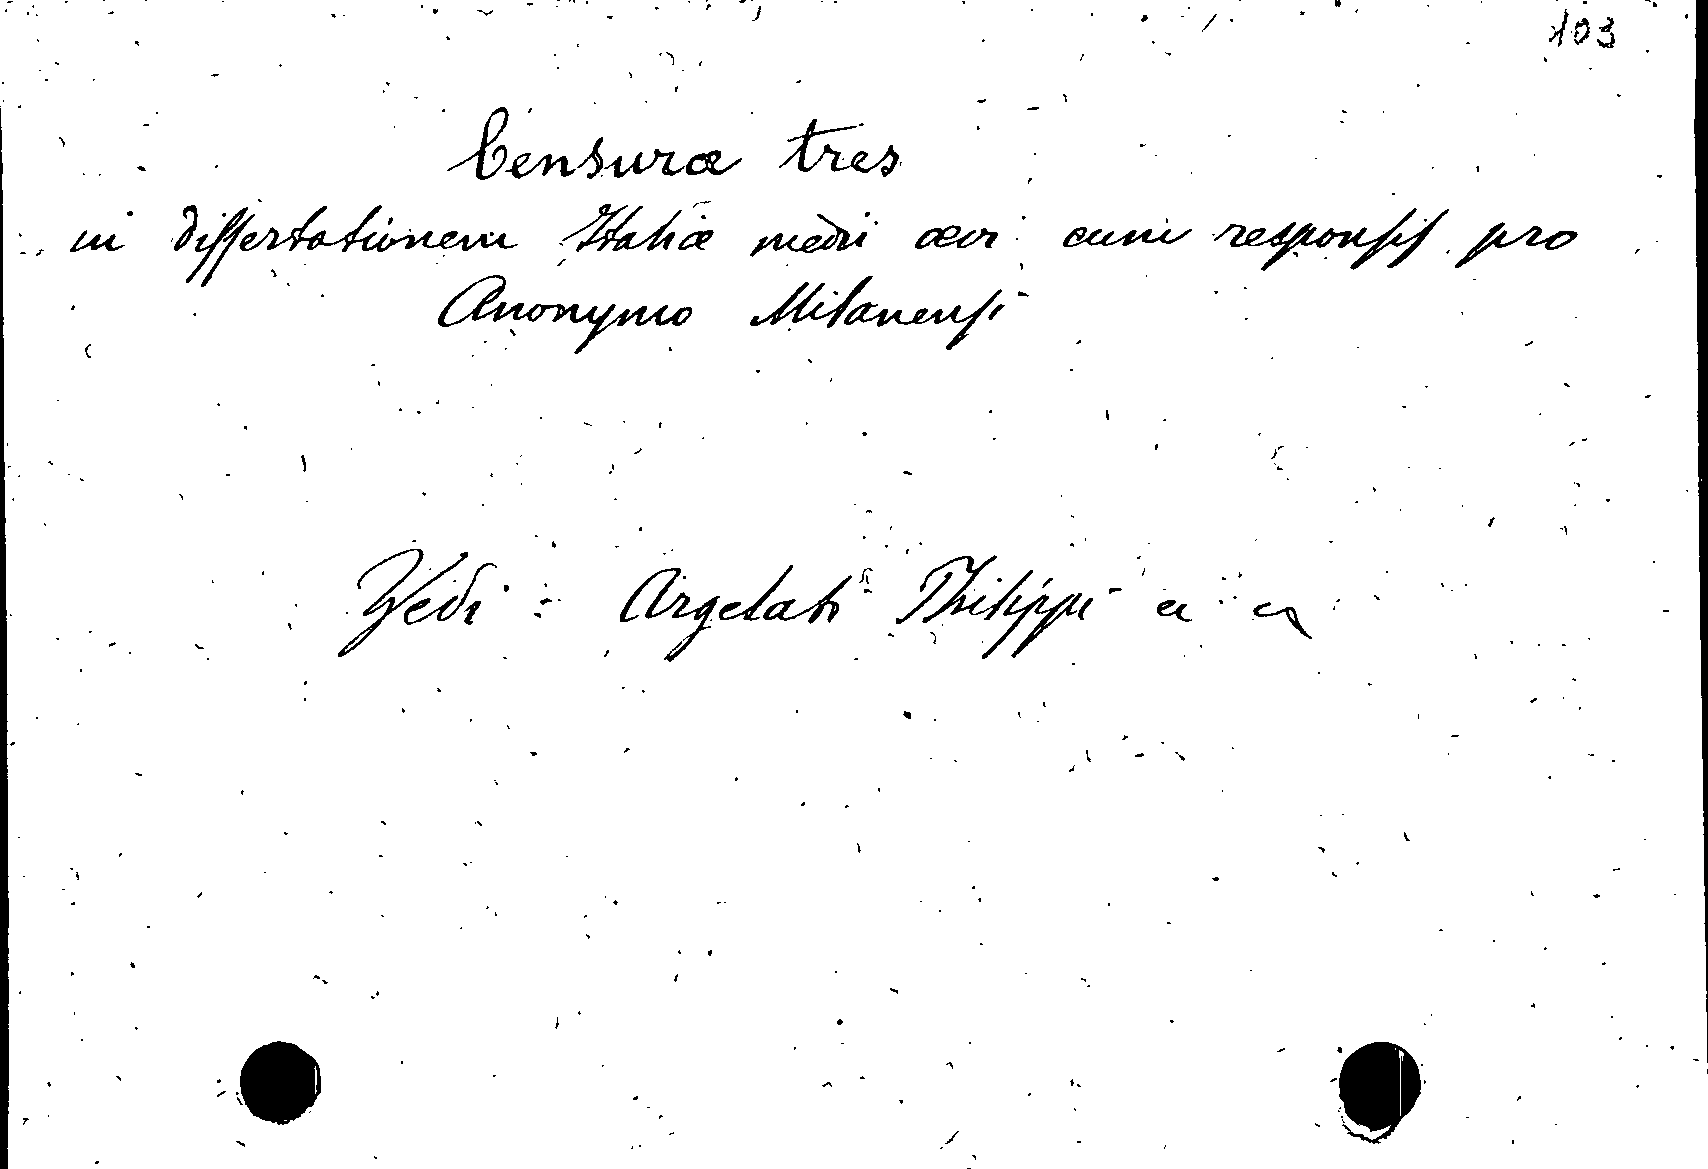 103
Censuræ tres
in dissertationem Italiæ medii ævi cum responsis pro
Anonymo Milanensi
Vedi: Argelati Philippi